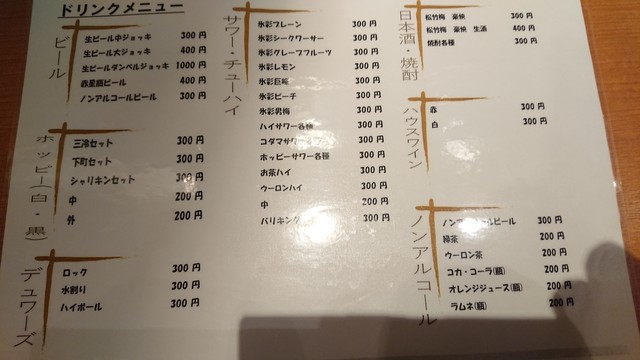 ドリンクメニュー
ビール
生ビール中ジョッキ 300円
生ビール大ジョッキ 400円
生ビールダンベルジョッキ 1000円
赤星瓶ビール 400円
ノンアルコールビール 300円
ホッピー(白・黒)
三冷セット 300円
下町セット 300円
シャリキンセット 300円
中 200円
外 200円
デュワーズ
ロック 300円
水割り 300円
ハイボール 300円
サワー・チューハイ
氷彩プレーン 300円
氷彩シークワーサー 300円
氷彩グレープフルーツ 300円
氷彩レモン 300円
氷彩巨峰 300円
氷彩ピーチ 300円
氷彩男梅 300円
ハイサワー各種 300円
コダマサワー 300円
ホッピーサワー各種 300円
お茶ハイ 300円
ウーロンハイ 300円
中 200円
バリキング 300円
日本酒・焼酎
松竹梅 豪快 300円
松竹梅 豪快 生酒 400円
焼酎各種 300円
ハウスワイン
赤 300円
白 300円
ノンアルコール
ノンアルコールビール 300円
緑茶 200円
ウーロン茶 200円
コカ・コーラ(瓶) 200円
オレンジジュース(瓶) 200円
ラムネ(瓶) 200円